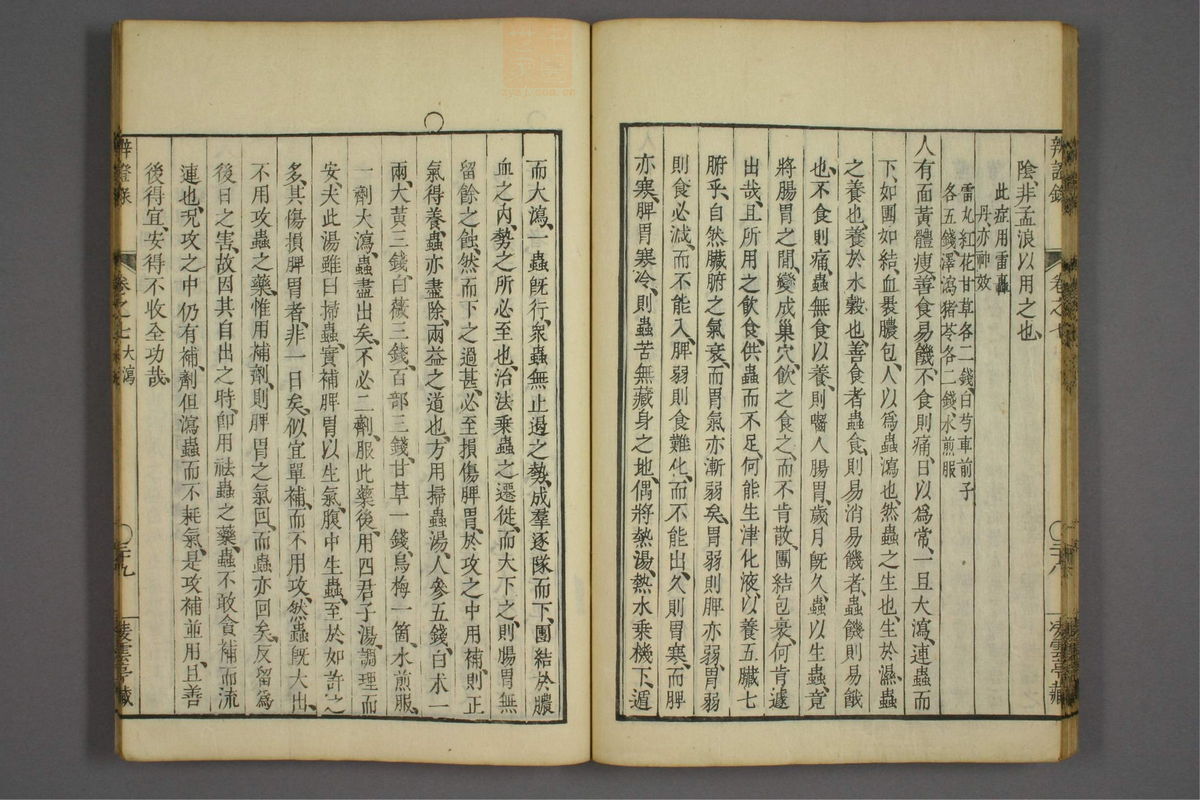 辨證錄 卷之七 三八 凌雲亭藏
陰、非孟浪以用之也、
此症用雷轟
丹亦神效
雷丸紅花甘草各二錢、白芍車前子
各五錢、澤瀉猪苓各二錢、水煎服
人有面黃體瘦、善食易饑、不食則痛、日以爲常、一旦大瀉、連蟲而
下、如團如結、血裹膿包、人以爲蟲瀉也、然蟲之生也、生於濕、蟲
之養也、養於水穀也、善食者蟲食、則易消、易饑者、蟲饑則易餓
也、不食則痛、蟲無食以養、則嚙人腸胃、歲月既久、蟲以生蟲、竟
將腸胃之間、變成巢穴、飲之食之、而不肯散、團結包裹、何肯遽
出哉、且所用之飲食、供蟲而不足、何能生津化液、以養五臟七
腑乎、自然臟腑之氣衰、而胃氣亦漸弱矣、胃弱則脾亦弱、胃弱
則食必減、而不能入、脾弱則食難化、而不能出、久則胃寒、而脾
亦寒、脾胃寒冷、則蟲苦無藏身之地、偶將熱湯、熱水乘機下、遁
而大瀉、一蟲旣行、衆蟲無止遏之勢、成羣逐隊而下、團結於膿
血之內、勢之所必至也、治法乘蟲之遷徙、而大下之、則腸胃無
留餘之蝕、然而下之過甚、必至損傷脾胃、於攻之中用補、則正
氣得養、蟲亦盡除、兩益之道也、方用掃蟲湯、人參五錢、白术一
兩、大黃三錢、白薇三錢、百部三錢、甘草一錢、烏梅一箇、水煎服、
一劑大瀉、蟲盡出矣、不必二劑、服此藥後、用四君子湯、調理而
安、夫此湯雖曰掃蟲、實補脾胃以生氣、腹中生蟲、至於如許之
多、其傷損脾胃者、非一日矣、似宜單補、而不用攻、然蟲旣大出、
不用攻蟲之藥、惟用補劑、則脾胃之氣回、而蟲亦回矣、反留爲
後日之害、故因其自出之時、卽用祛蟲之藥、蟲不敢貪補而流
連也、況攻之中仍有補劑、但瀉蟲而不耗氣、是攻補並用、且善
後得宜、安得不收全功哉、
辨證錄 卷之七 大瀉 三九 凌雲亭藏